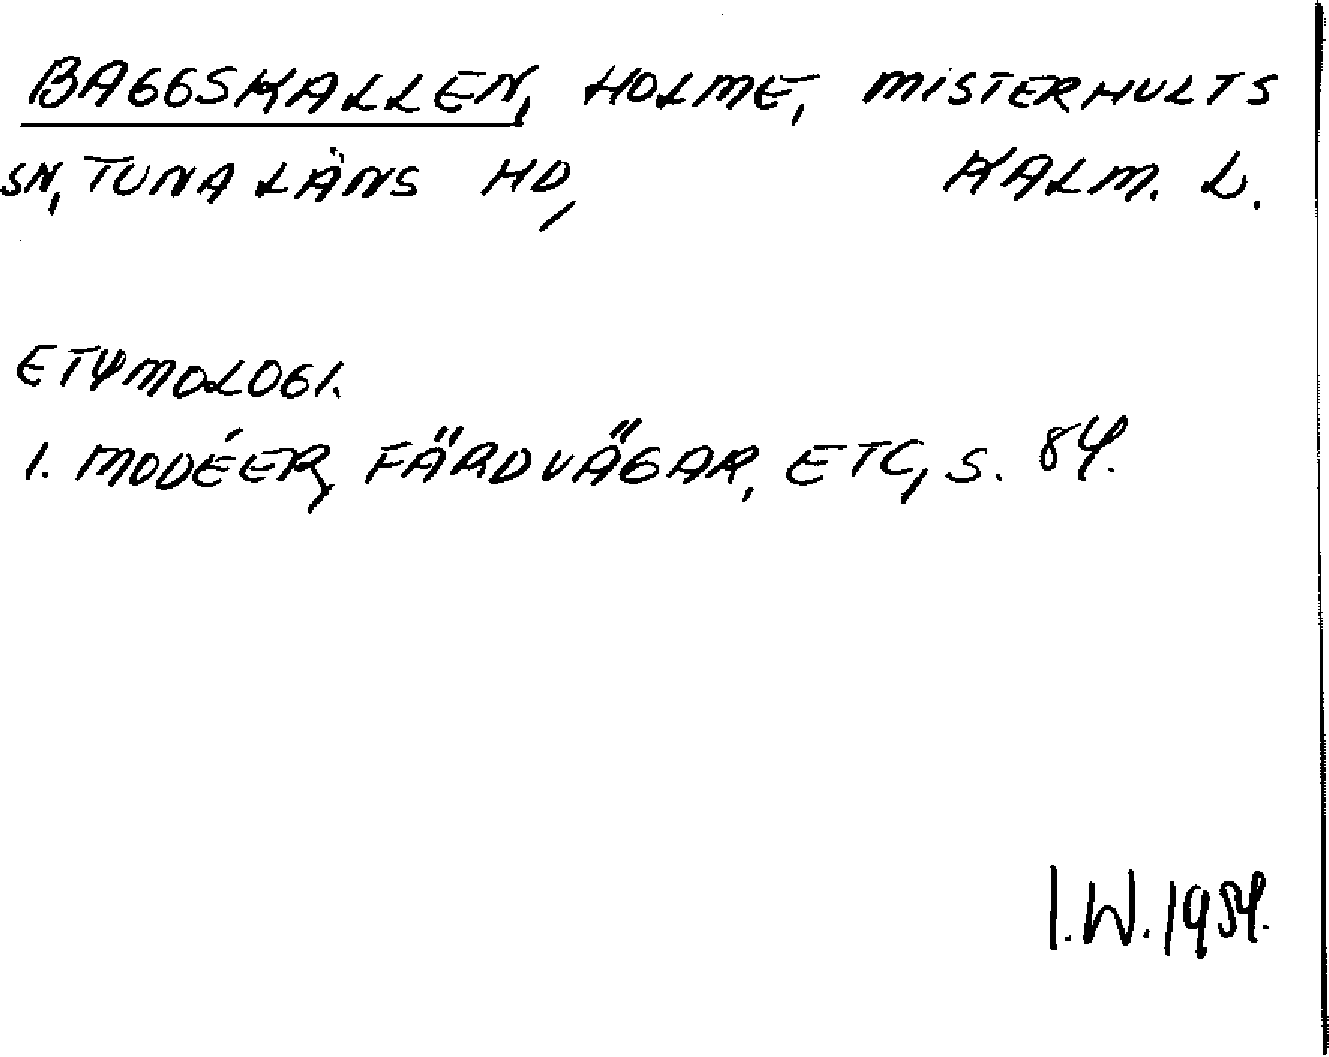 BAGGSKALLEN, HOLME, MISTERHULTS
SN, TUNA LÄNS HD, KALM. L.
ETYMOLOGI.
1. MODÉER, FÄRDVÄGAR, ETC, S. 84.
I.W. 1954.